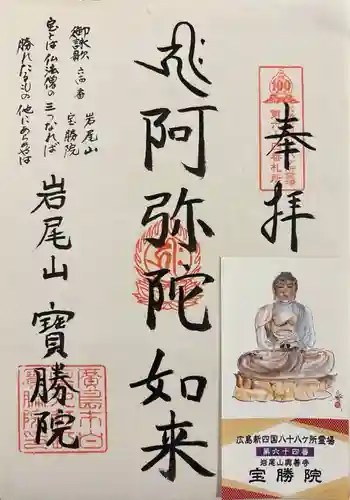 奉拝
阿弥陀如来
岩尾山 寳勝院
御詠歌 六四番
岩尾山
宝勝院
宝とは仏法僧の三つなれば
勝れたるもの他にあらめば
100
廣島
広島新四国八十八ケ所霊場
第六十四番
岩尾山興善寺
宝勝院